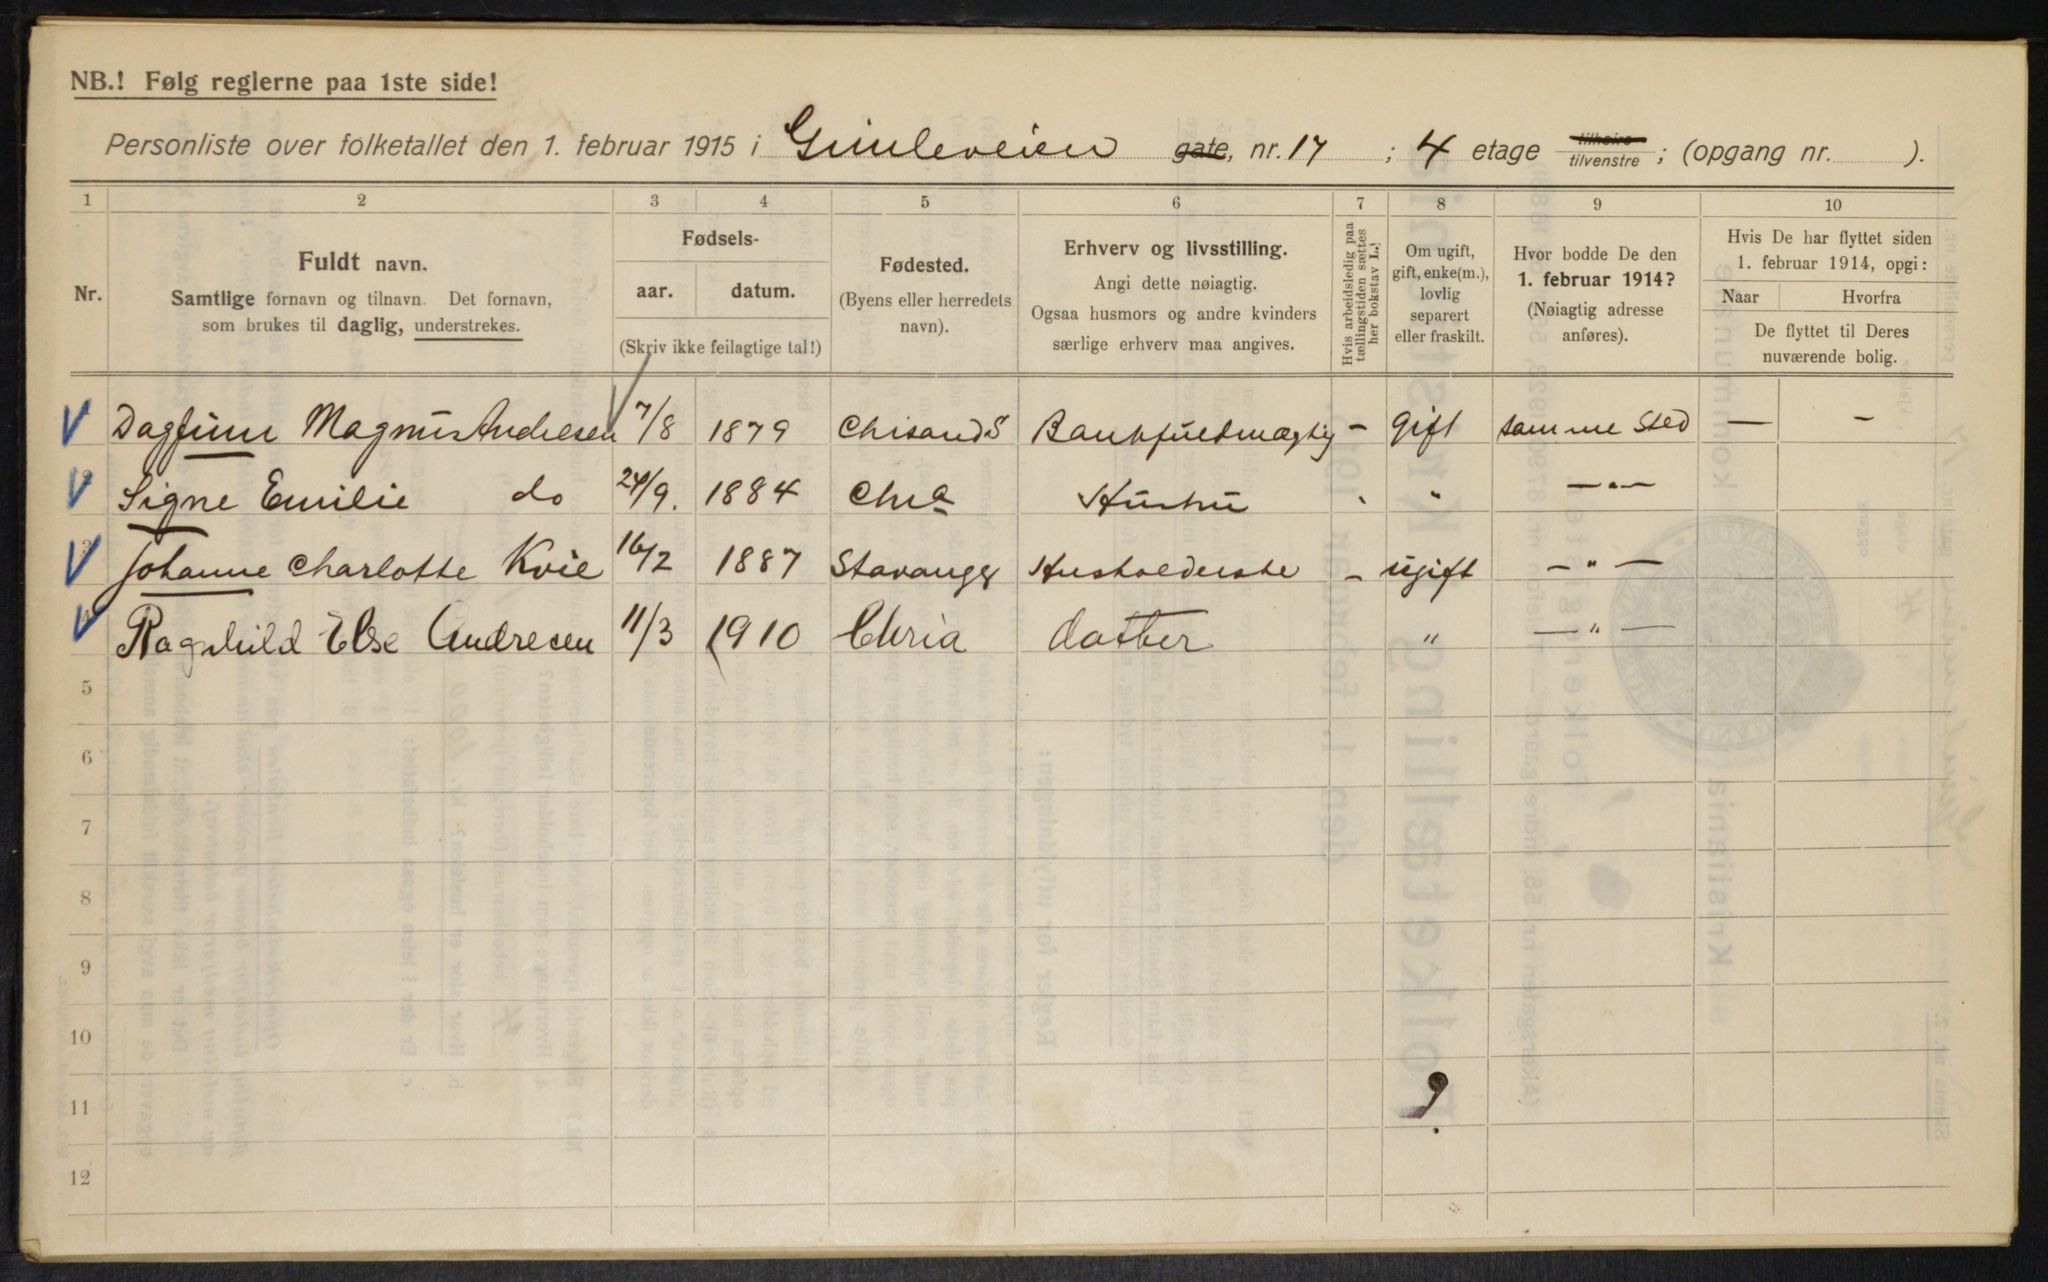 NB.! Følg reglerne paa 1ste side!
Personliste over folketallet den 1. februar 1915 i Gimleveien gate, nr. 17 ; 4 etage tilhøire tilvenstre ; (opgang nr. ).
1 2 3 4 5 6 7 8 9 10
Nr.
Fuldt navn.
Samtlige fornavn og tilnavn. Det fornavn,
som brukes til daglig, understrekes.
Fødsels-
aar. datum.
(Skriv ikke feilagtige tal!)
Fødested.
(Byens eller herredets
navn).
Erhverv og livsstilling.
Angi dette nøiagtig.
Ogsaa husmors og andre kvinders
særlige erhverv maa angives.
Hvis arbeidsledig paa
tællingstiden sættes
her bokstav L.!
Om ugift,
gift, enke(m.),
lovlig
separert
eller fraskilt.
Hvor bodde De den
1. februar 1914?
(Nøiagtig adresse
anføres).
Hvis De har flyttet siden
1. februar 1914, opgi:
Naar Hvorfra
De flyttet til Deres
nuværende bolig.
Dagfinn Magnus Andresen 7/8 1879 Chrsand S Bankfuldmægtig – Gift samme Sted — –
2 Signe Emilie do 24/9. 1884 Chra Hustru " " — " —
3 Johanne Charlotte Kvie 16/2 1887 Stavanger Husholderske – ugift — " —
4 Ragnhild Else Andresen 11/3 1910 Chria datter " — " —
5
6
7
8
9
10
11
12